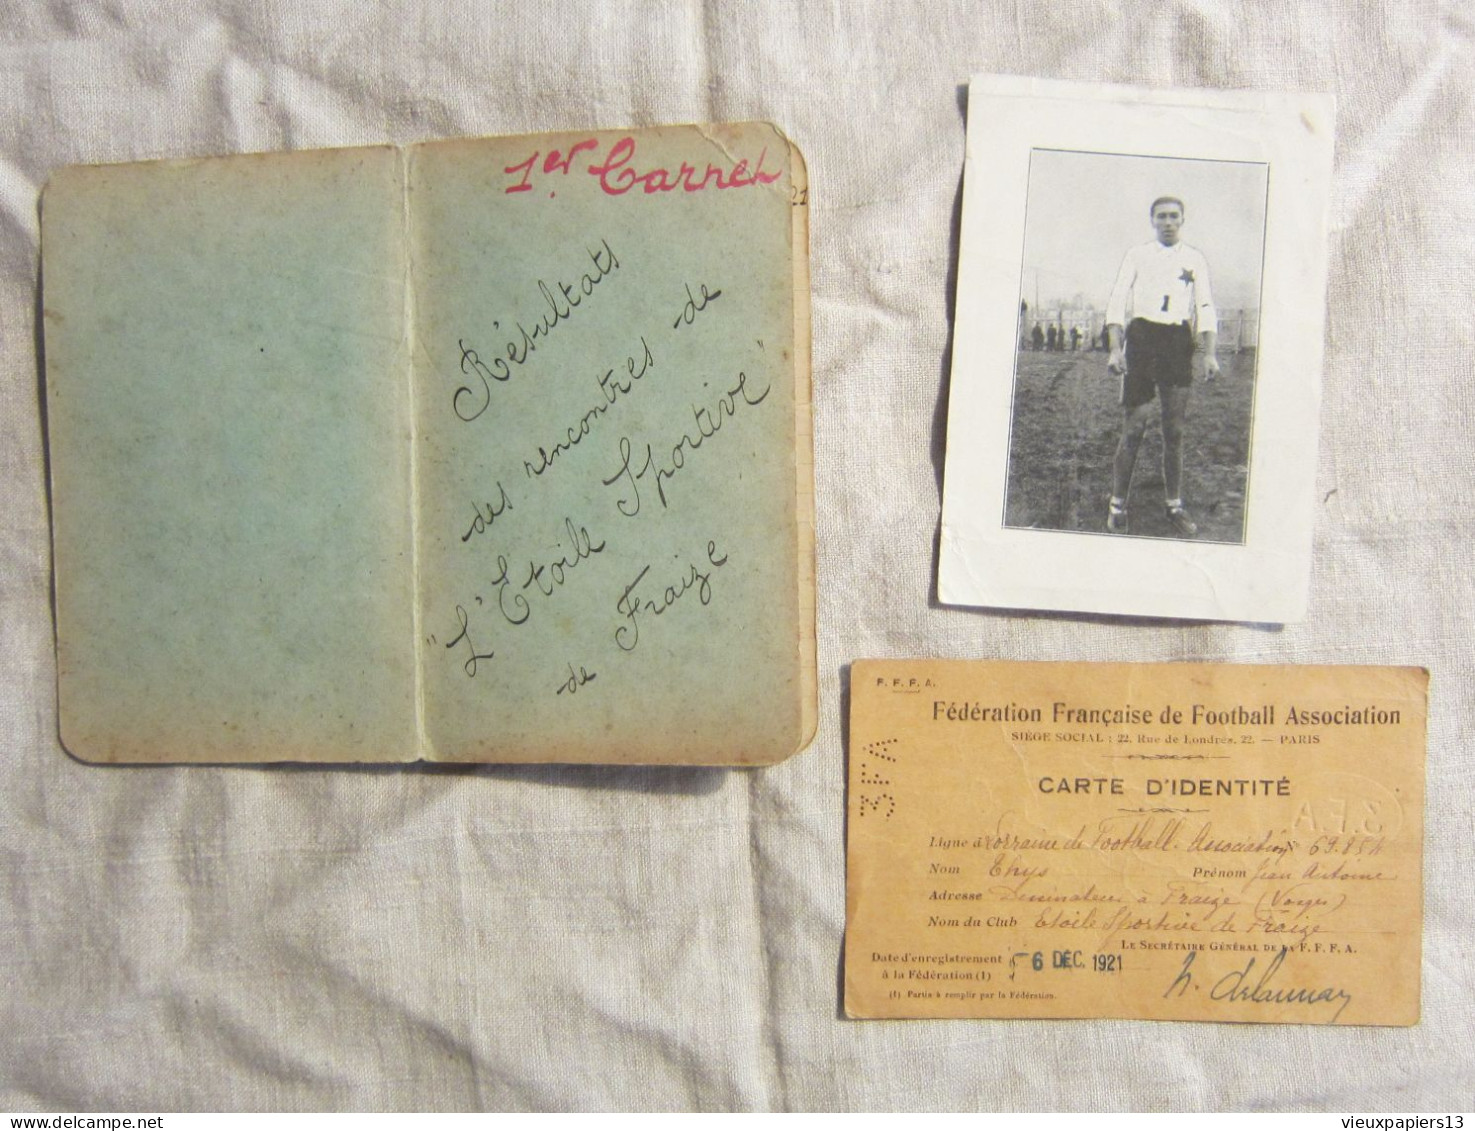 1er Carnet
21
Résultats
des rencontres de
"L'Etoile Sportive"
de Fraize
1
F. F. F. A.
Fédération Française de Football Association
SIÈGE SOCIAL : 22, Rue de Londres, 22. — PARIS
3FA
CARTE D'IDENTITÉ
3.F.A
Ligue de Lorraine de Football Association N° 69.854
Nom Thys Prénom Jean Antoine
Adresse Dessinateur à Fraize (Vosges)
Nom du Club Etoile Sportive de Fraize
LE SECRÉTAIRE GÉNÉRAL DE LA F. F. F. A.
Date d'enregistrement
à la Fédération (1) -6 DÉC. 1921
(1) Partie à remplir par la Fédération.
h. delaunay
vieuxpapiers13